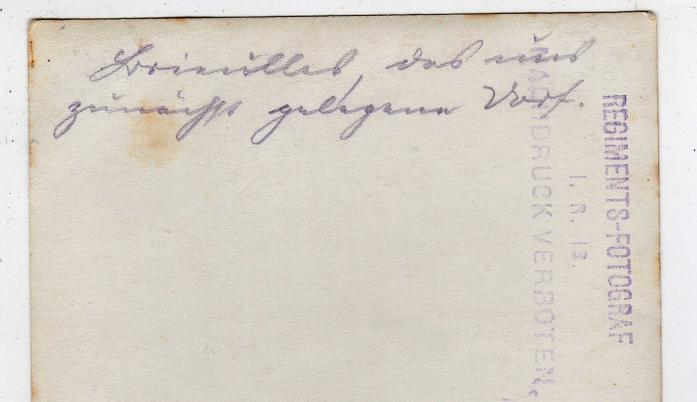 Brieulles, das uns
zunächst gelegene Dorf.
REGIMENTS-FOTOGRAF
I. R. 13.
NACHDRUCK VERBOTEN.